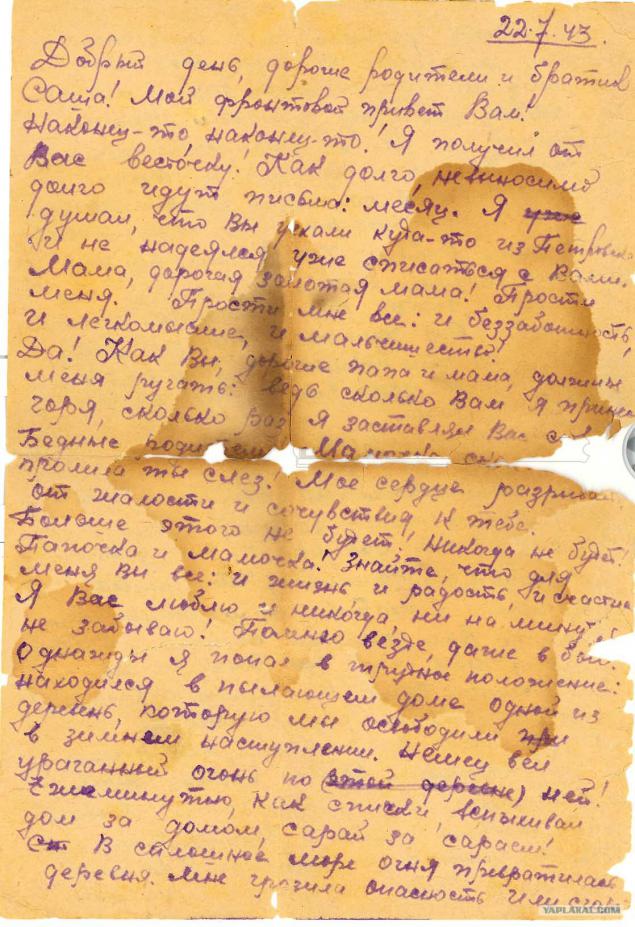 22.7.43.
Добрый день, дорогие родители и братик
Саша! Мой фронтовой привет Вам!
Наконец-то наконец-то! Я получил от
Вас весточку! Как долго, невыносимо
долго идут письма: месяц. Я уже
думал, что Вы уехали куда-то из Петровска
и не надеялся уже списаться с Вами.
Мама, дорогая золотая мама! Прости
меня. Прости мне все: и беззаботность,
и легкомыслие, и мальчишество!
Да! Как Вы, дорогие папа и мама, должны
меня ругать: ведь сколько Вам я
горя, сколько раз я заставлял Вас
Бедные Мамочка
пролила ты слез! Мое сердце
от жалости и сочувствия к тебе.
Больше этого не будет, никогда не будет!
Папочка и мамочка! Знайте, что для
меня Вы все: и жизнь и радость, и счастье
Я Вас люблю и никогда, ни на минуту
не забываю! Помню везде, даже в бою.
Однажды я попал в трудное положение:
находился в пылающем доме одной из
деревень, которую мы освободили при
в зимнем наступлении. Немец вел
ураганный огонь по (этой деревне) ней!
Ежеминутно, как спички, вспыхивал
дом за домом, сарай за сараем!
Ст В сплошное море огня превратилась
деревня. Мне грозила опасность или
YAPLAKAL.COM